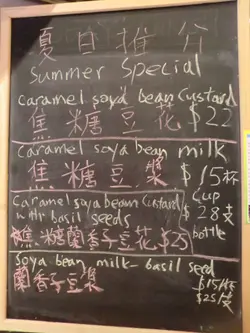 夏日推介
Summer Special
caramel soya bean custard
焦糖豆花 $22
caramel soya bean milk
焦糖豆漿 $15杯
cup
$28支
bottle
caramel soya bean custard
with basil seeds
焦糖蘭香子豆花 $25
Soya bean milk-basil seed
蘭香子豆漿 $15/杯
$25/支